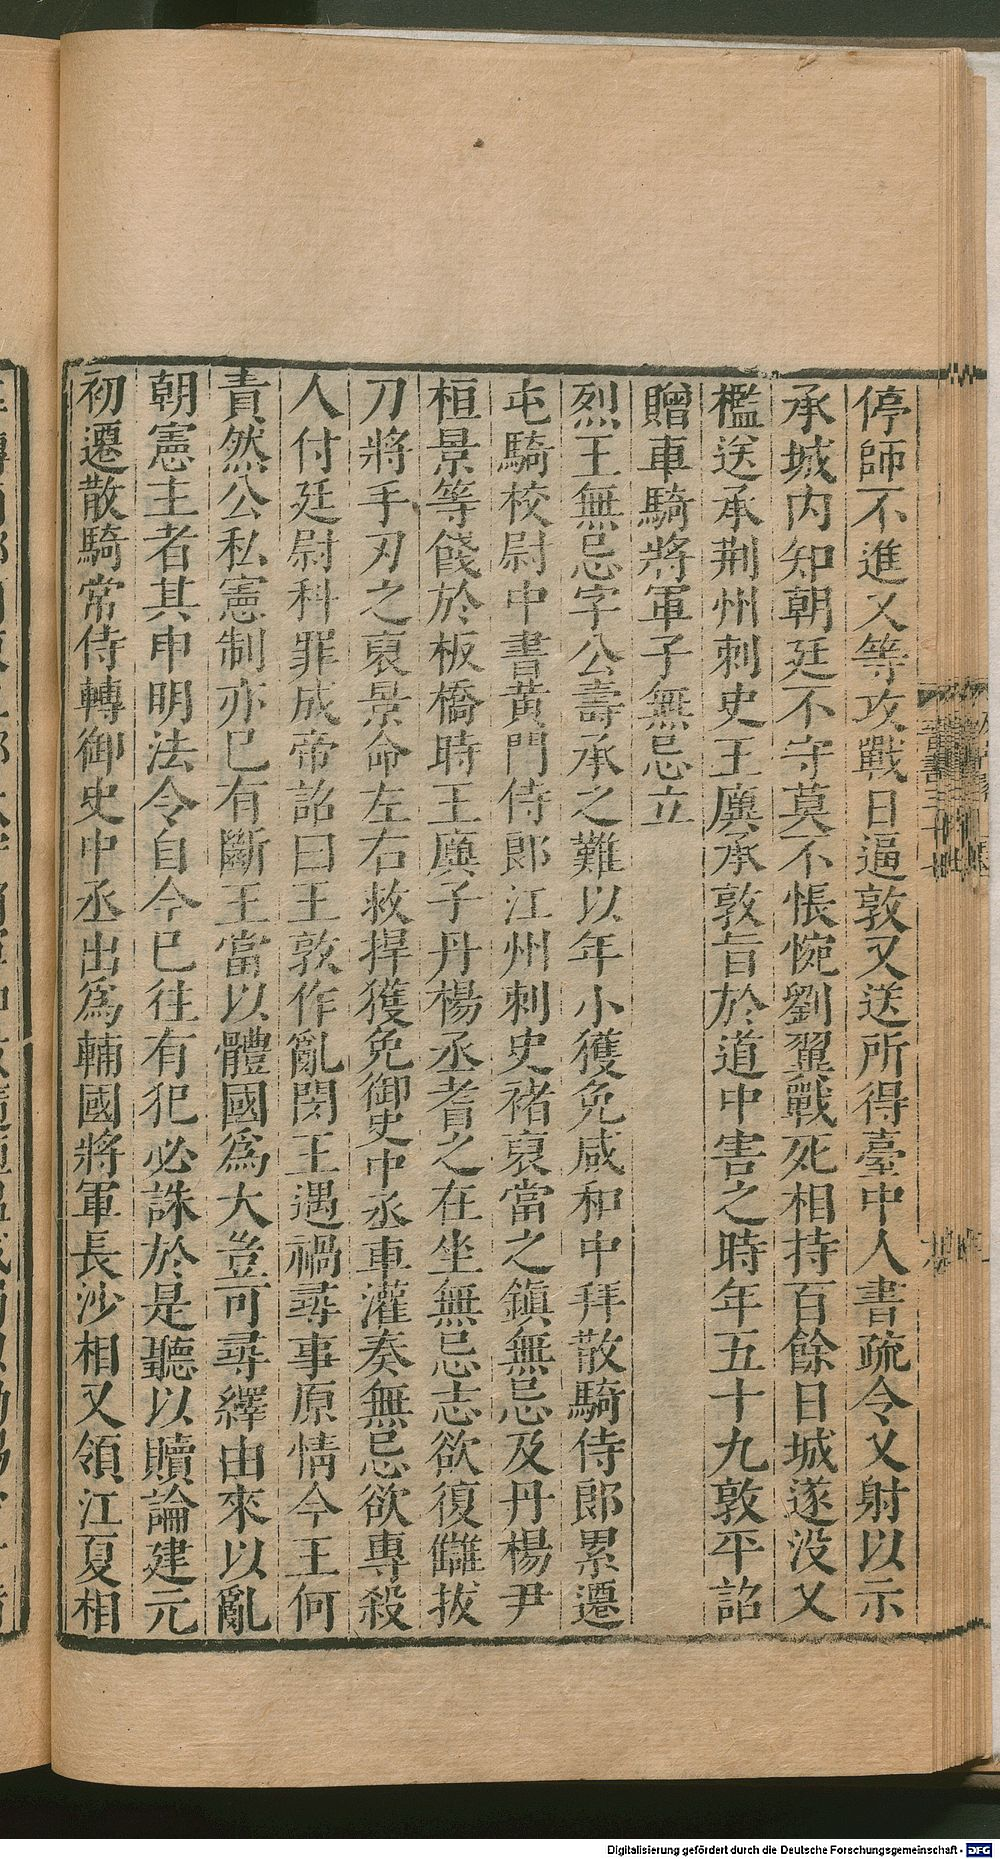 停師不進乂等攻戰日逼敦又送所得臺中人書疏令乂射以示
承城内知朝廷不守莫不悵惋劉翼戰死相持百餘日城遂没乂
檻送承荆州刺史王廙承敦旨於道中害之時年五十九敦平詔
贈車騎將軍子無忌立
烈王無忌字公壽承之難以年小獲免咸和中拜散騎侍郎累遷
屯騎校尉中書黄門侍郎江州刺史褚裒當之鎮無忌及丹楊尹
桓景等餞於板橋時王廙子丹楊丞耆之在坐無忌志欲復讎拔
刀將手刃之裒景命左右救捍獲免御史中丞車灌奏無忌欲專殺
人付廷尉科罪成帝詔曰王敦作亂閔王遇禍尋事原情今王何
責然公私憲制亦已有斷王當以體國爲大豈可尋繹由來以亂
朝憲主者其申明法令自今已往有犯必誅於是聽以贖論建元
初遷散騎常侍轉御史中丞出爲輔國將軍長沙相又領江夏相
Digitalisierung gefördert durch die Deutsche Forschungsgemeinschaft - DFG